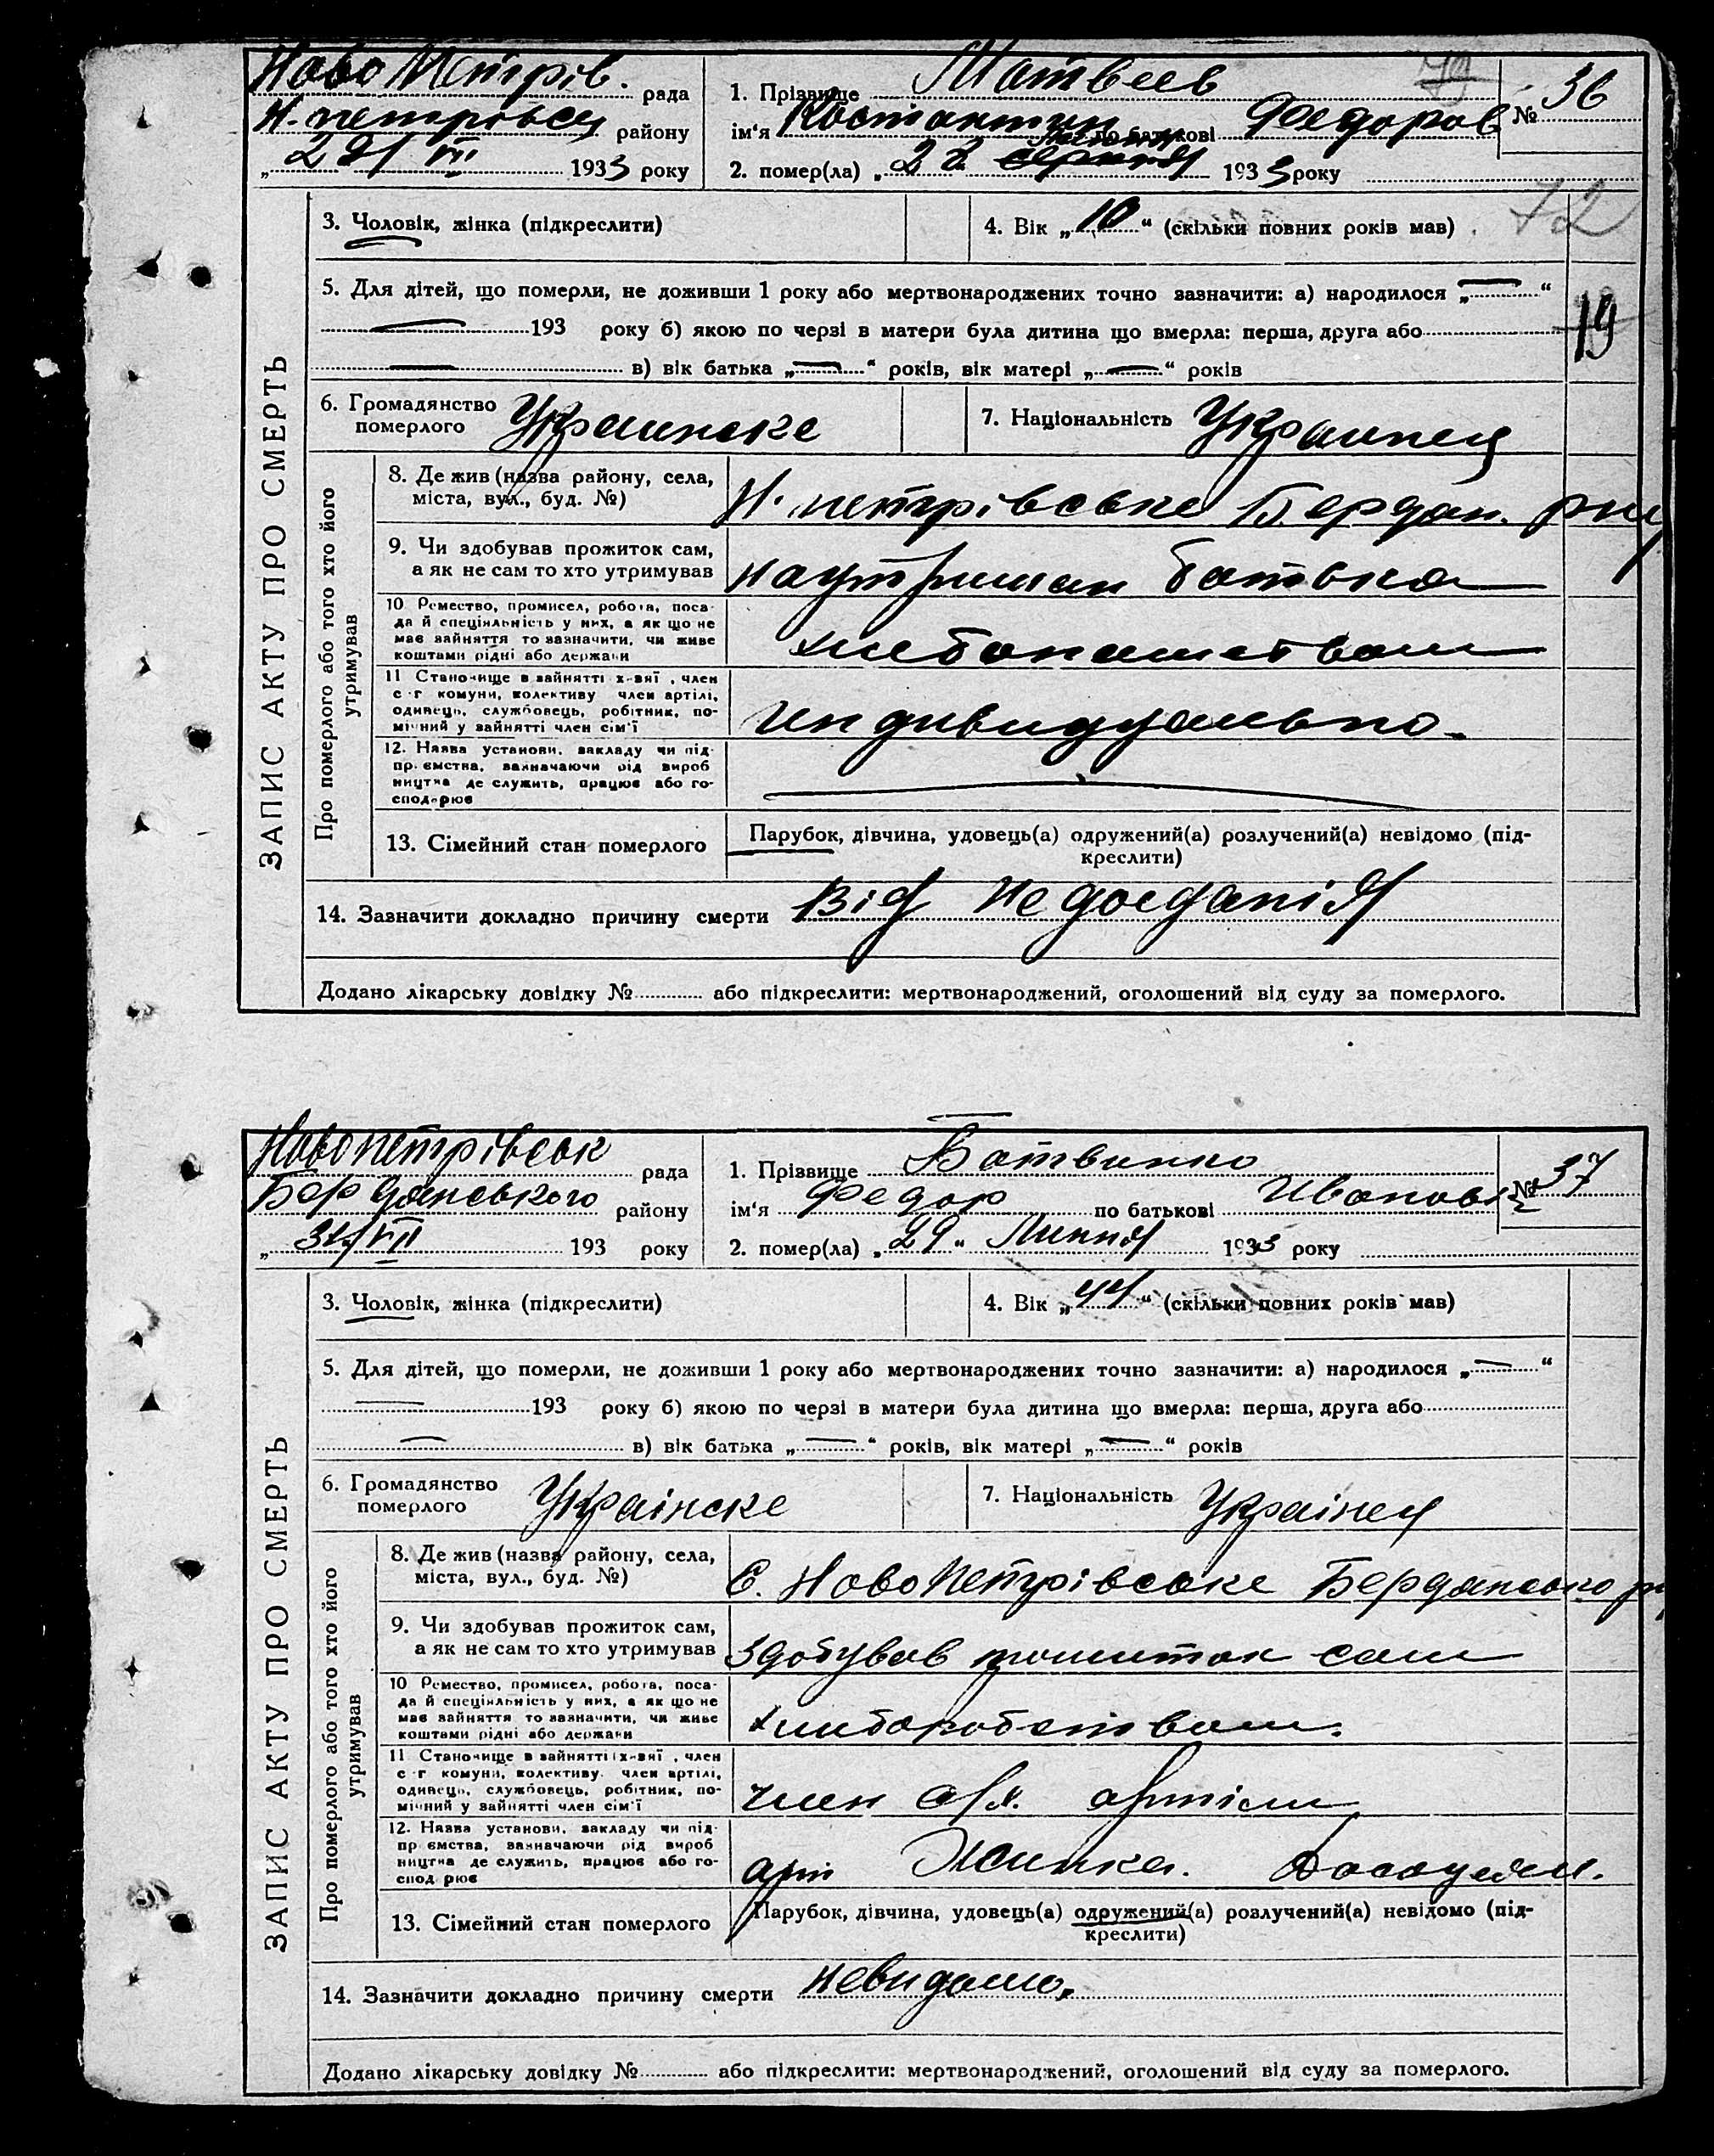 Ново Петрів. рада
Н. петрівсц району
„ 28/VII 1933 року
1. Прізвище Матвеев
ім'я Костантин по батькові Федоров
2. помер(ла) „ 28 серпня 1933 року
№ 36
72
3. Чоловік, жінка (підкреслити)
4. Вік „ 10 “ (скільки повних років мав)
5. Для дітей, що померли, не доживши 1 року або мертвонароджених точно зазначити: а) народилося „ — “
— 193 року б) якою по черзі в матери була дитина що вмерла: перша, друга або
19
— в) вік батька „ — “ років, вік матері „ — “ років
6. Громадянство померлого Украинске
7. Національність Украинец
ЗАПИС АКТУ ПРО СМЕРТЬ
Про померлого або того хто його утримував
8. Де жив (назва району, села,
міста, вул., буд. №)
Н. петрівське Бердян. рну
9. Чи здобував прожиток сам,
а як не сам то хто утримував
на утриман батька
10 Ремество, промисел, робота, поса-
да й спеціяльність у них, а як що не
має зайняття то зазначити, чи живе
коштами рідні або держави
хлебопашеством
11 Становище в зайнятті х-вяї, член
с-г комуни, колективу член артілі,
одинець, службовець, робітник, по-
мічний у зайнятті член сім'ї
индивидуально.
12. Назва установи, закладу чи під-
пр.ємства, зазначаючи рід вироб
ництва де служить, працює або го-
сподарює
—
13. Сімейний стан померлого
Парубок, дівчина, удовець(а) одружений(а) розлучений(а) невідомо (під-
креслити)
14. Зазначити докладно причину смерти Від недоеданія
Додано лікарську довідку № або підкреслити: мертвонароджений, оголошений від суду за померлого.
Новопетрівськ рада
Бердянського району
„ 31/VII 193 року
1. Прізвище Ботвинко
ім'я Федор по батькові Иванов
2. помер(ла) „ 29 “ Липня 1933 року
№ 37
3. Чоловік, жінка (підкреслити)
4. Вік „ 44 “ (скільки повних років мав)
5. Для дітей, що померли, не доживши 1 року або мертвонароджених точно зазначити: а) народилося „ — “
— 193 року б) якою по черзі в матери була дитина що вмерла: перша, друга або
— в) вік батька „ — “ років, вік матері „ — “ років
6. Громадянство померлого Українске
7. Національність Українец
ЗАПИС АКТУ ПРО СМЕРТЬ
Про померлого або того хто його утримував
8. Де жив (назва району, села,
міста, вул., буд. №)
С. НовоПетрівське Бердянсько р
9. Чи здобував прожиток сам,
а як не сам то хто утримував
здобував прошиток сам
10 Ремество, промисел, робота, поса-
да й спеціяльність у них, а як що не
має зайняття то зазначити, чи живе
коштами рідні або держави
хлиборобством.
11 Становище в зайнятті х-вяї, член
с-г комуни, колективу. член артілі,
одинець, службовець, робітник, по-
мічний у зайнятті член сім'ї
член с/г. артіли
12. Назва установи, закладу чи під-
пр ємства, зазначаючи рід вироб
ництва де служить, працює або го-
спод рює
арт
13. Сімейний стан померлого
Парубок, дівчина, удовець(а) одружений(а) розлучений(а) невідомо (під-
креслити)
14. Зазначити докладно причину смерти невидомо.
Додано лікарську довідку № або підкреслити: мертвонароджений, оголошений від суду за померлого.